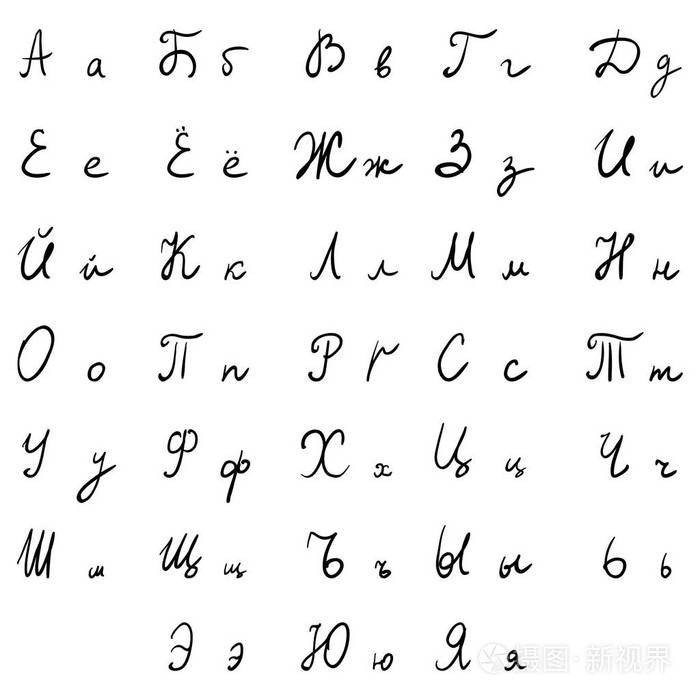 А а Б б В в Г г Д д
Е е Ё ё Ж ж З з И и
Й й К к Л л М м Н н
О о П п Р р С с Т т
У у Ф ф Х х Ц ц Ч ч
Ш ш Щ щ Ъ ъ Ы ы Ь ь
Э э Ю ю Я я
摄图·新视界